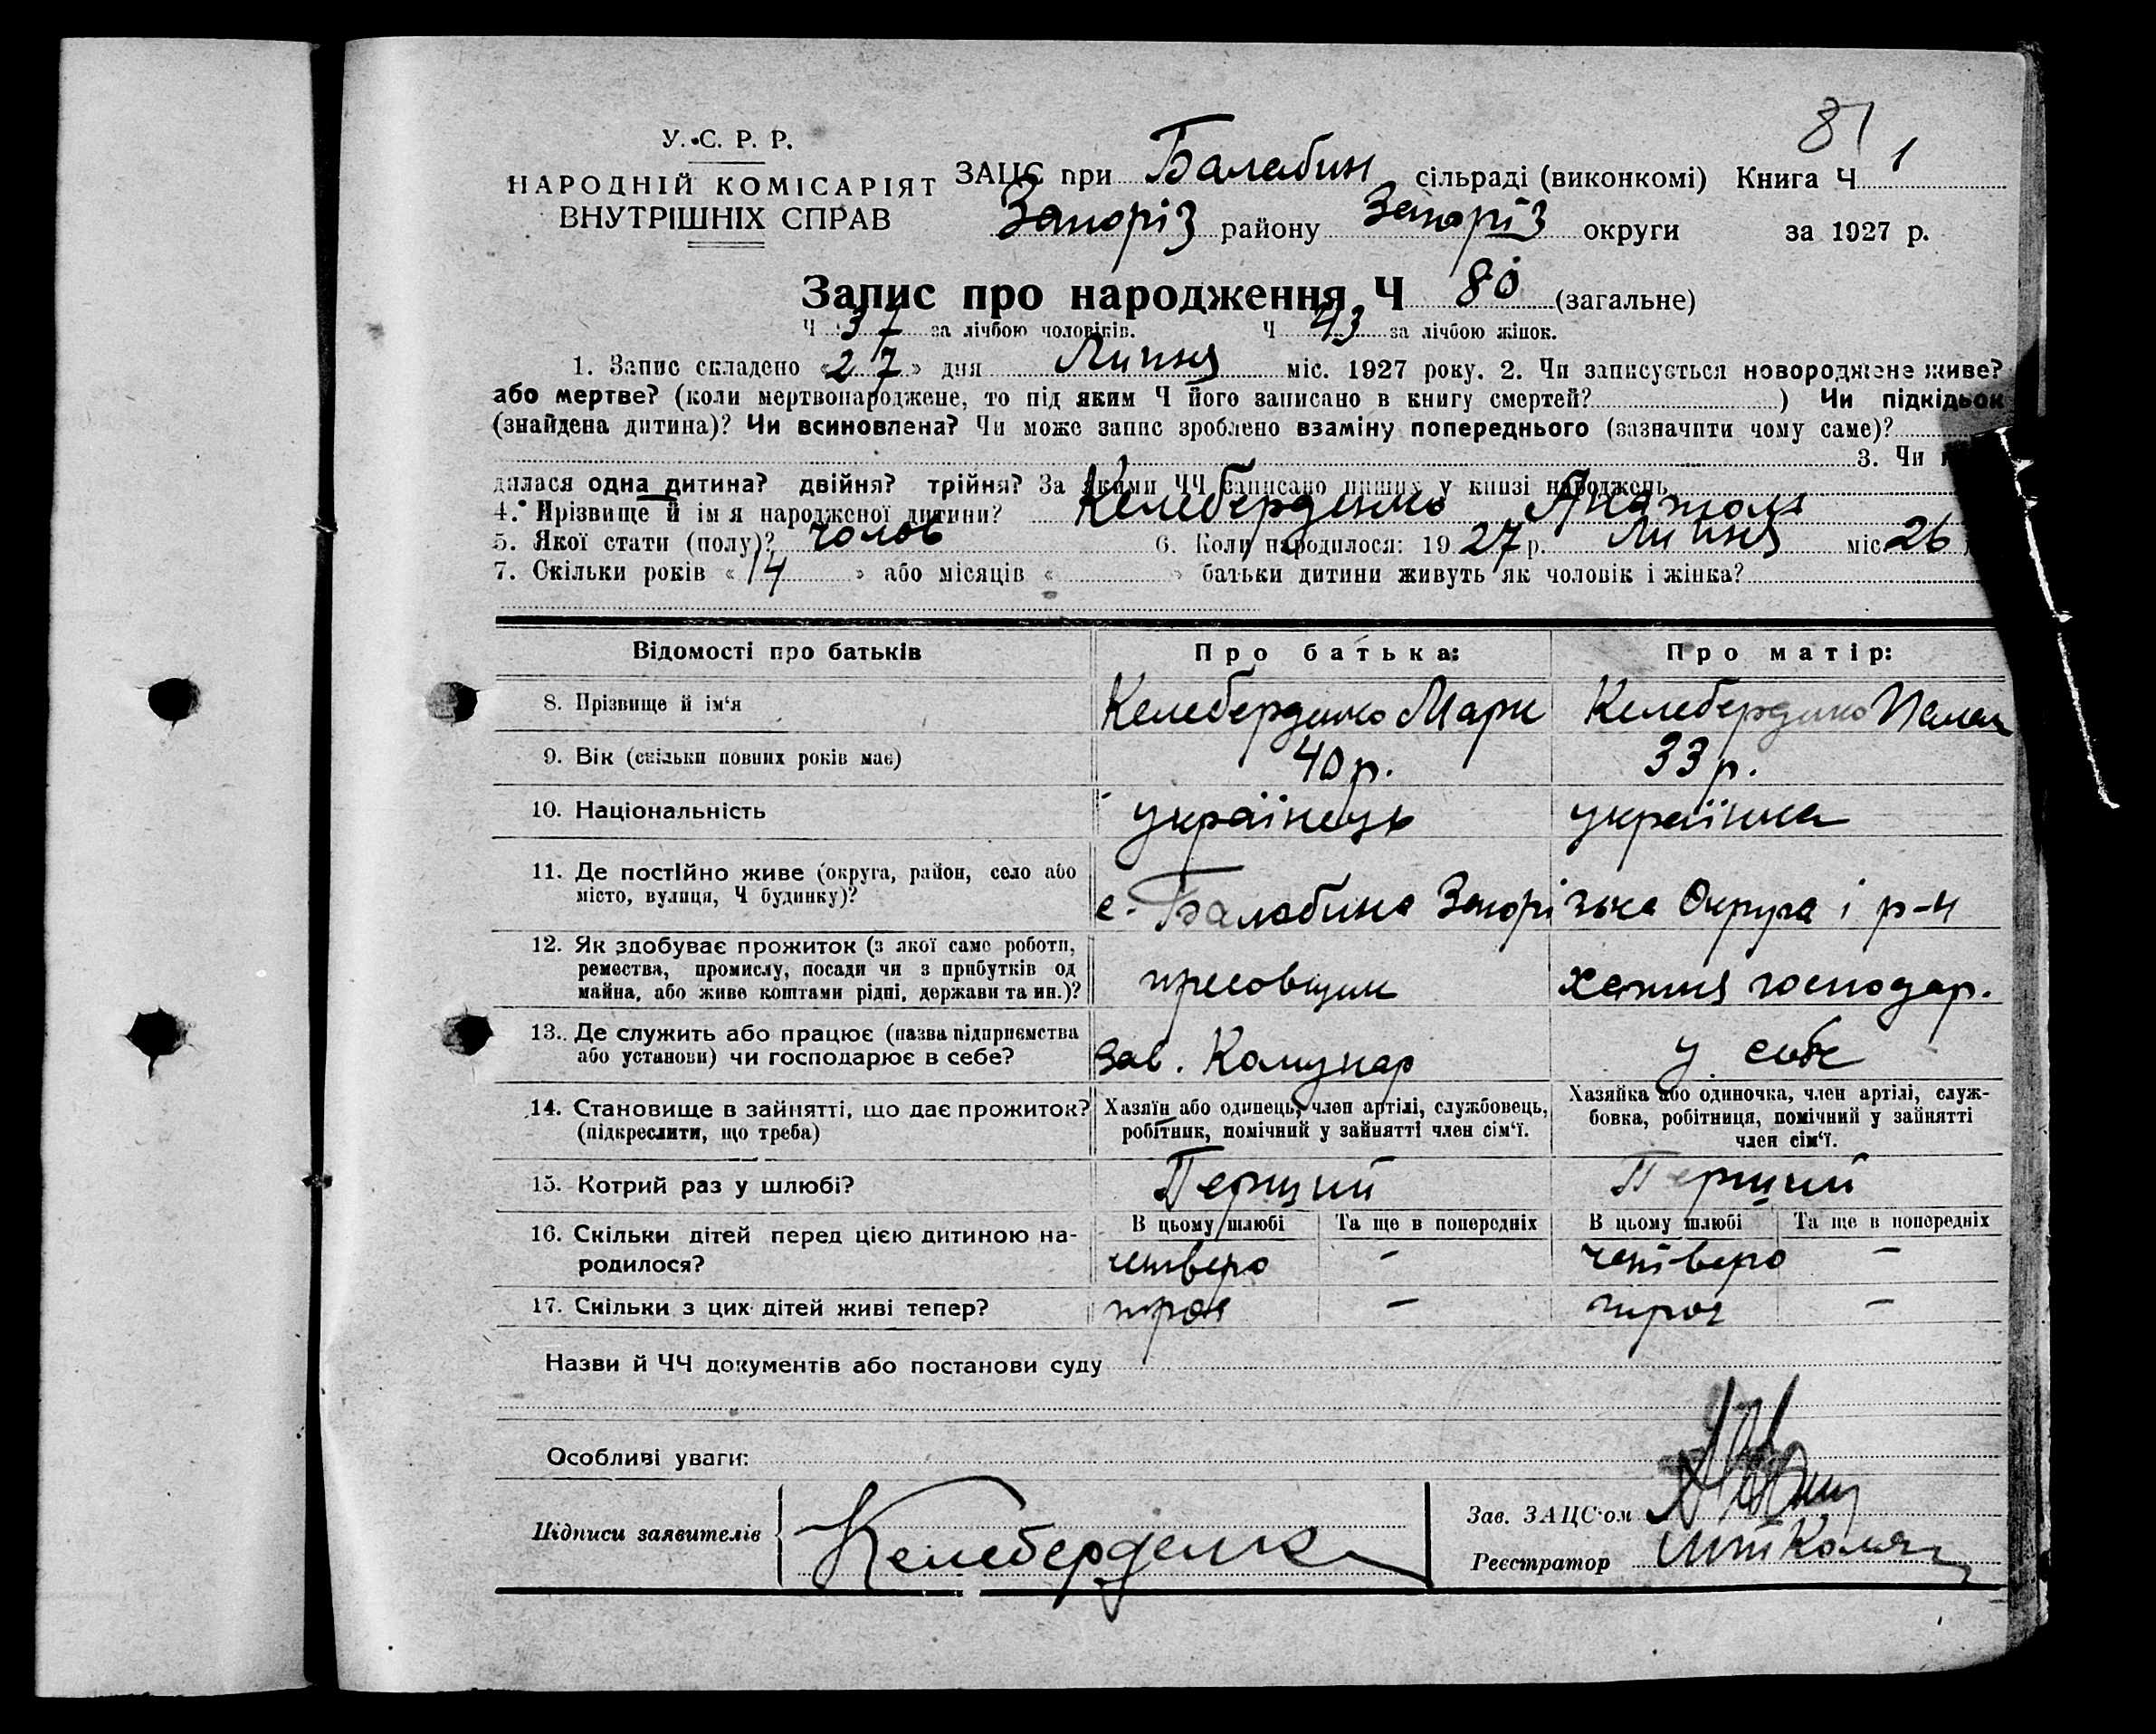 81
У. С. Р. Р.
НАРОДНІЙ КОМІСАРІЯТ
ВНУТРІШНІХ СПРАВ
ЗАЦС при Балабин сільраді (виконкомі) Книга Ч 1
Запоріз району Запоріз округи за 1927 р.
Запис про народження Ч 80 (загальне)
Ч 37 за лічбою чоловіків. Ч 43 за лічбою жінок.
1. Запис складено «27» дня Липня міс. 1927 року. 2. Чи записується новороджене живе?
або мертве? (коли мертвонароджене, то під яким Ч його записано в книгу смертей? ) Чи підкідьок
(знайдена дитина)? Чи всиновлена? Чи може запис зроблено взаміну попереднього (зазначити чому саме)?
3. Чи
дилася одна дитина? двійня? трійня? За якими ЧЧ записано инших у книзі народжень
4. Прізвище й ім я народженої дитини? Келеберденко Анатолі
5. Якої стати (полу)? чолов 6. Коли народилося: 1927 р. Липня міс 26
7. Скільки років «14» або місяців « » батьки дитини живуть як чоловік і жінка?
Відомості про батьків Про батька: Про матір:
8. Прізвище й ім‘я Келеберденко Марк Келеберденко Пелаг
9. Вік (скільки повних років має) 40 р. 33 р.
10. Національність українець українка
11. Де постійно живе (округа, район, село або
місто, вулиця, Ч будинку)? с. Балабино Запорізька Округа і р-н
12. Як здобуває прожиток (з якої саме роботи,
ремества, промислу, посади чи з прибутків од
майна, або живе коштами рідні, держави та ин.)? пресовщик хатня господар.
13. Де служить або працює (назва підприємства
або установи) чи господарює в себе? Зав. Комунар у себе
14. Становище в зайнятті, що дає прожиток?
(підкреслити, що треба)
Хазяїн або одинець, член артілі, службовець,
робітник, помічний у зайнятті член сім‘ї.
Хазяйка або одиночка, член артілі, служ-
бовка, робітниця, помічний у зайнятті
член сім‘ї.
15. Котрий раз у шлюбі? Перший Перший
16. Скільки дітей перед цією дитиною на-
родилося?
В цьому шлюбі Та ще в попередніх В цьому шлюбі Та ще в попередніх
четверо – четверо –
17. Скільки з цих дітей живі тепер? троя – троя –
Назви й ЧЧ документів або постанови суду
Особливі уваги:
Підписи заявителів Келеберденко
Зав. ЗАЦС·ом
Реєстратор